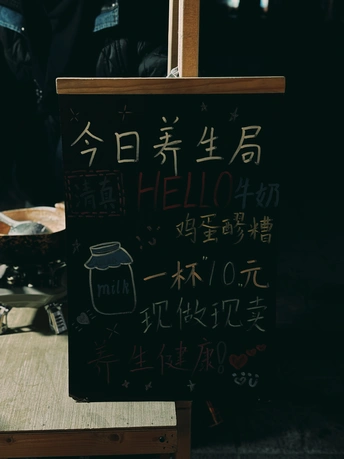 今日养生局
清真 HELLO 牛奶
鸡蛋醪糟
milk
一杯"10.元
现做现卖
养生健康!